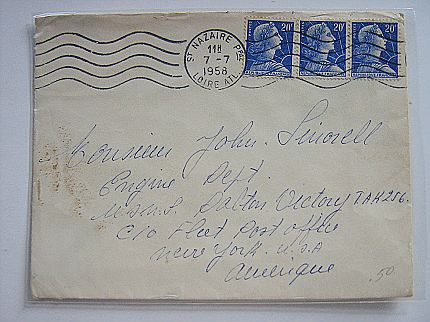 ST NAZAIRE PPAL
11H
7 - 7
1958
LOIRE ATL
20F 20F 20F
Monsieur John. Sinorell
Engine Dept.
U.S.N.S. Dalton Victory TAK 256.
C/o Fleet Post office
New York. U.S.A
Amerique
.50